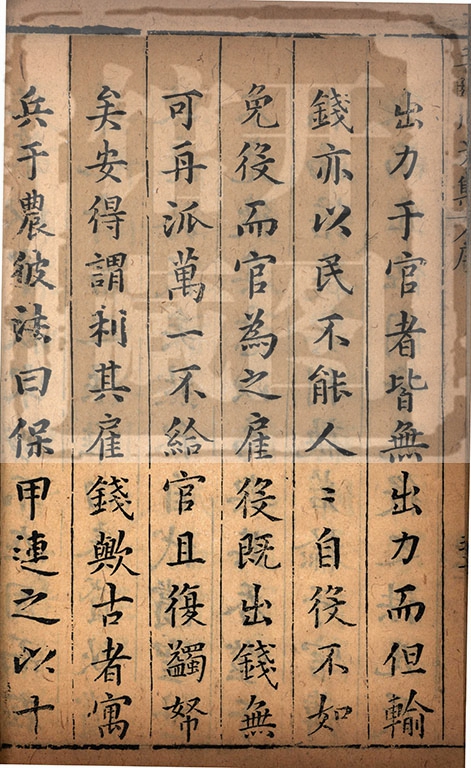 出力于官者皆無出力而但輸
錢亦以民不能人〻自役不如
免役而官為之雇役既出錢無
可再派萬一不給官且復蠲帑
矣安得謂利其雇錢歟古者寓
兵于農彼法曰保甲連之以十